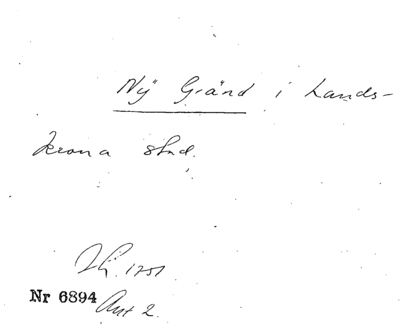 Nÿ Gränd i Lands-
krona stad.
1751
Nr 6894
Avt 2.